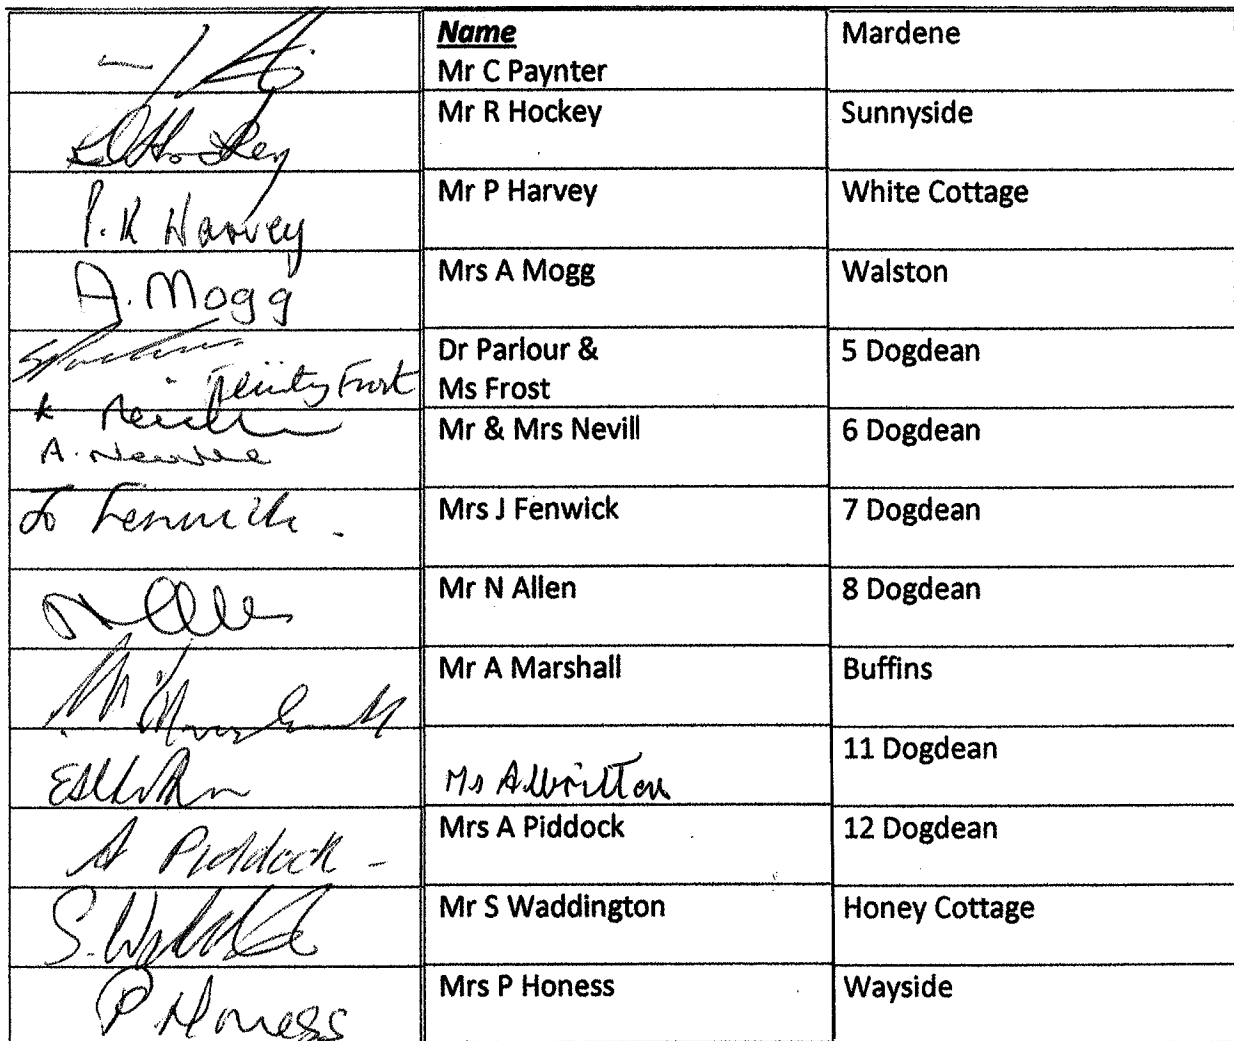 Name
Mr C Paynter
Mardene
R Hockey
Mr R Hockey
Sunnyside
P. K Harvey
Mr P Harvey
White Cottage
A. Mogg
Mrs A Mogg
Walston
Felicity Frost
Dr Parlour &
Ms Frost
5 Dogdean
A. Neville
Mr & Mrs Nevill
6 Dogdean
Jo Fenwick.
Mrs J Fenwick
7 Dogdean
N Allen
Mr N Allen
8 Dogdean
Mr A Marshall
Buffins
Ms
11 Dogdean
A Piddock -
Mrs A Piddock
12 Dogdean
Mr S Waddington
Honey Cottage
P Honess
Mrs P Honess
Wayside